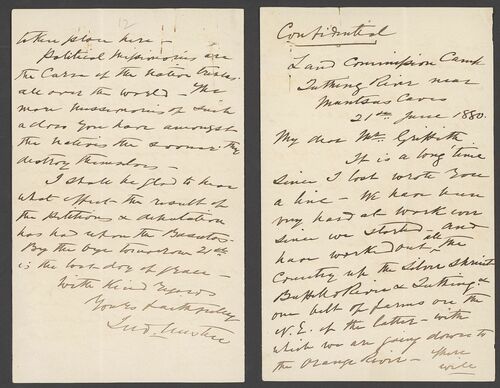 Confidential
Land Commission Camp
River near
21st June 1880.
My dear Mr. Griffith
It is a long time
since I last wrote you
a line - We have been
very hard at work ever
since we started - and
have worked out all the
Country up the
Buffalo River &
one belt of farms on the
N.E. of the latter - with
which we are going down to
the Orange River - there
will
12
take place here -
Political Missionaries are
the Curse of the nation
all over the world - The
more Missionaries of such
a class you have amongst
the natives the sooner they
destroy themselves -
I shall be glad to hear
what effect the result of
the petitions & deputation
has had upon the Basutos -
By the bye tomorrow 21st
is the last day of grace -
With Kind Regards
Yours faithfully